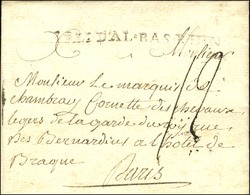 Monsieur
Monsieur Le marquis de
chambray Cornette des chevaux
legers de la garde du roy rue
des Bernardins a l'hotel de
Braque
Paris